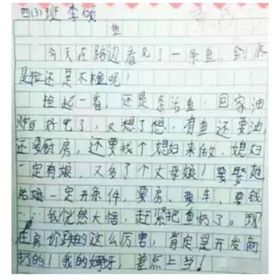 四(3)班 李硕
鱼
今天在路边看见了一条鱼,到底
是捡还是不捡呢!
捡起一看,还是条活鱼,回家油
炸好了,又想了想,有鱼还要油
还要厨房,还要找个媳妇来做,媳妇
一定有娘,又多了个丈母娘!要娶她
老娘一定开条件,要房、要车、要钱
,我恍然大悟,赶紧把鱼扔了。现
在房价跌的这么厉害,肯定是开发商
扔的!我的妈呀,差点上当!